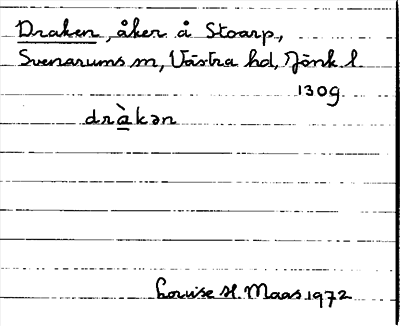 Draken, åker å Stoarp,
Svenarums sn, Västra hd, Jönk l
130g
dràkən
Louise H. Maas 1972